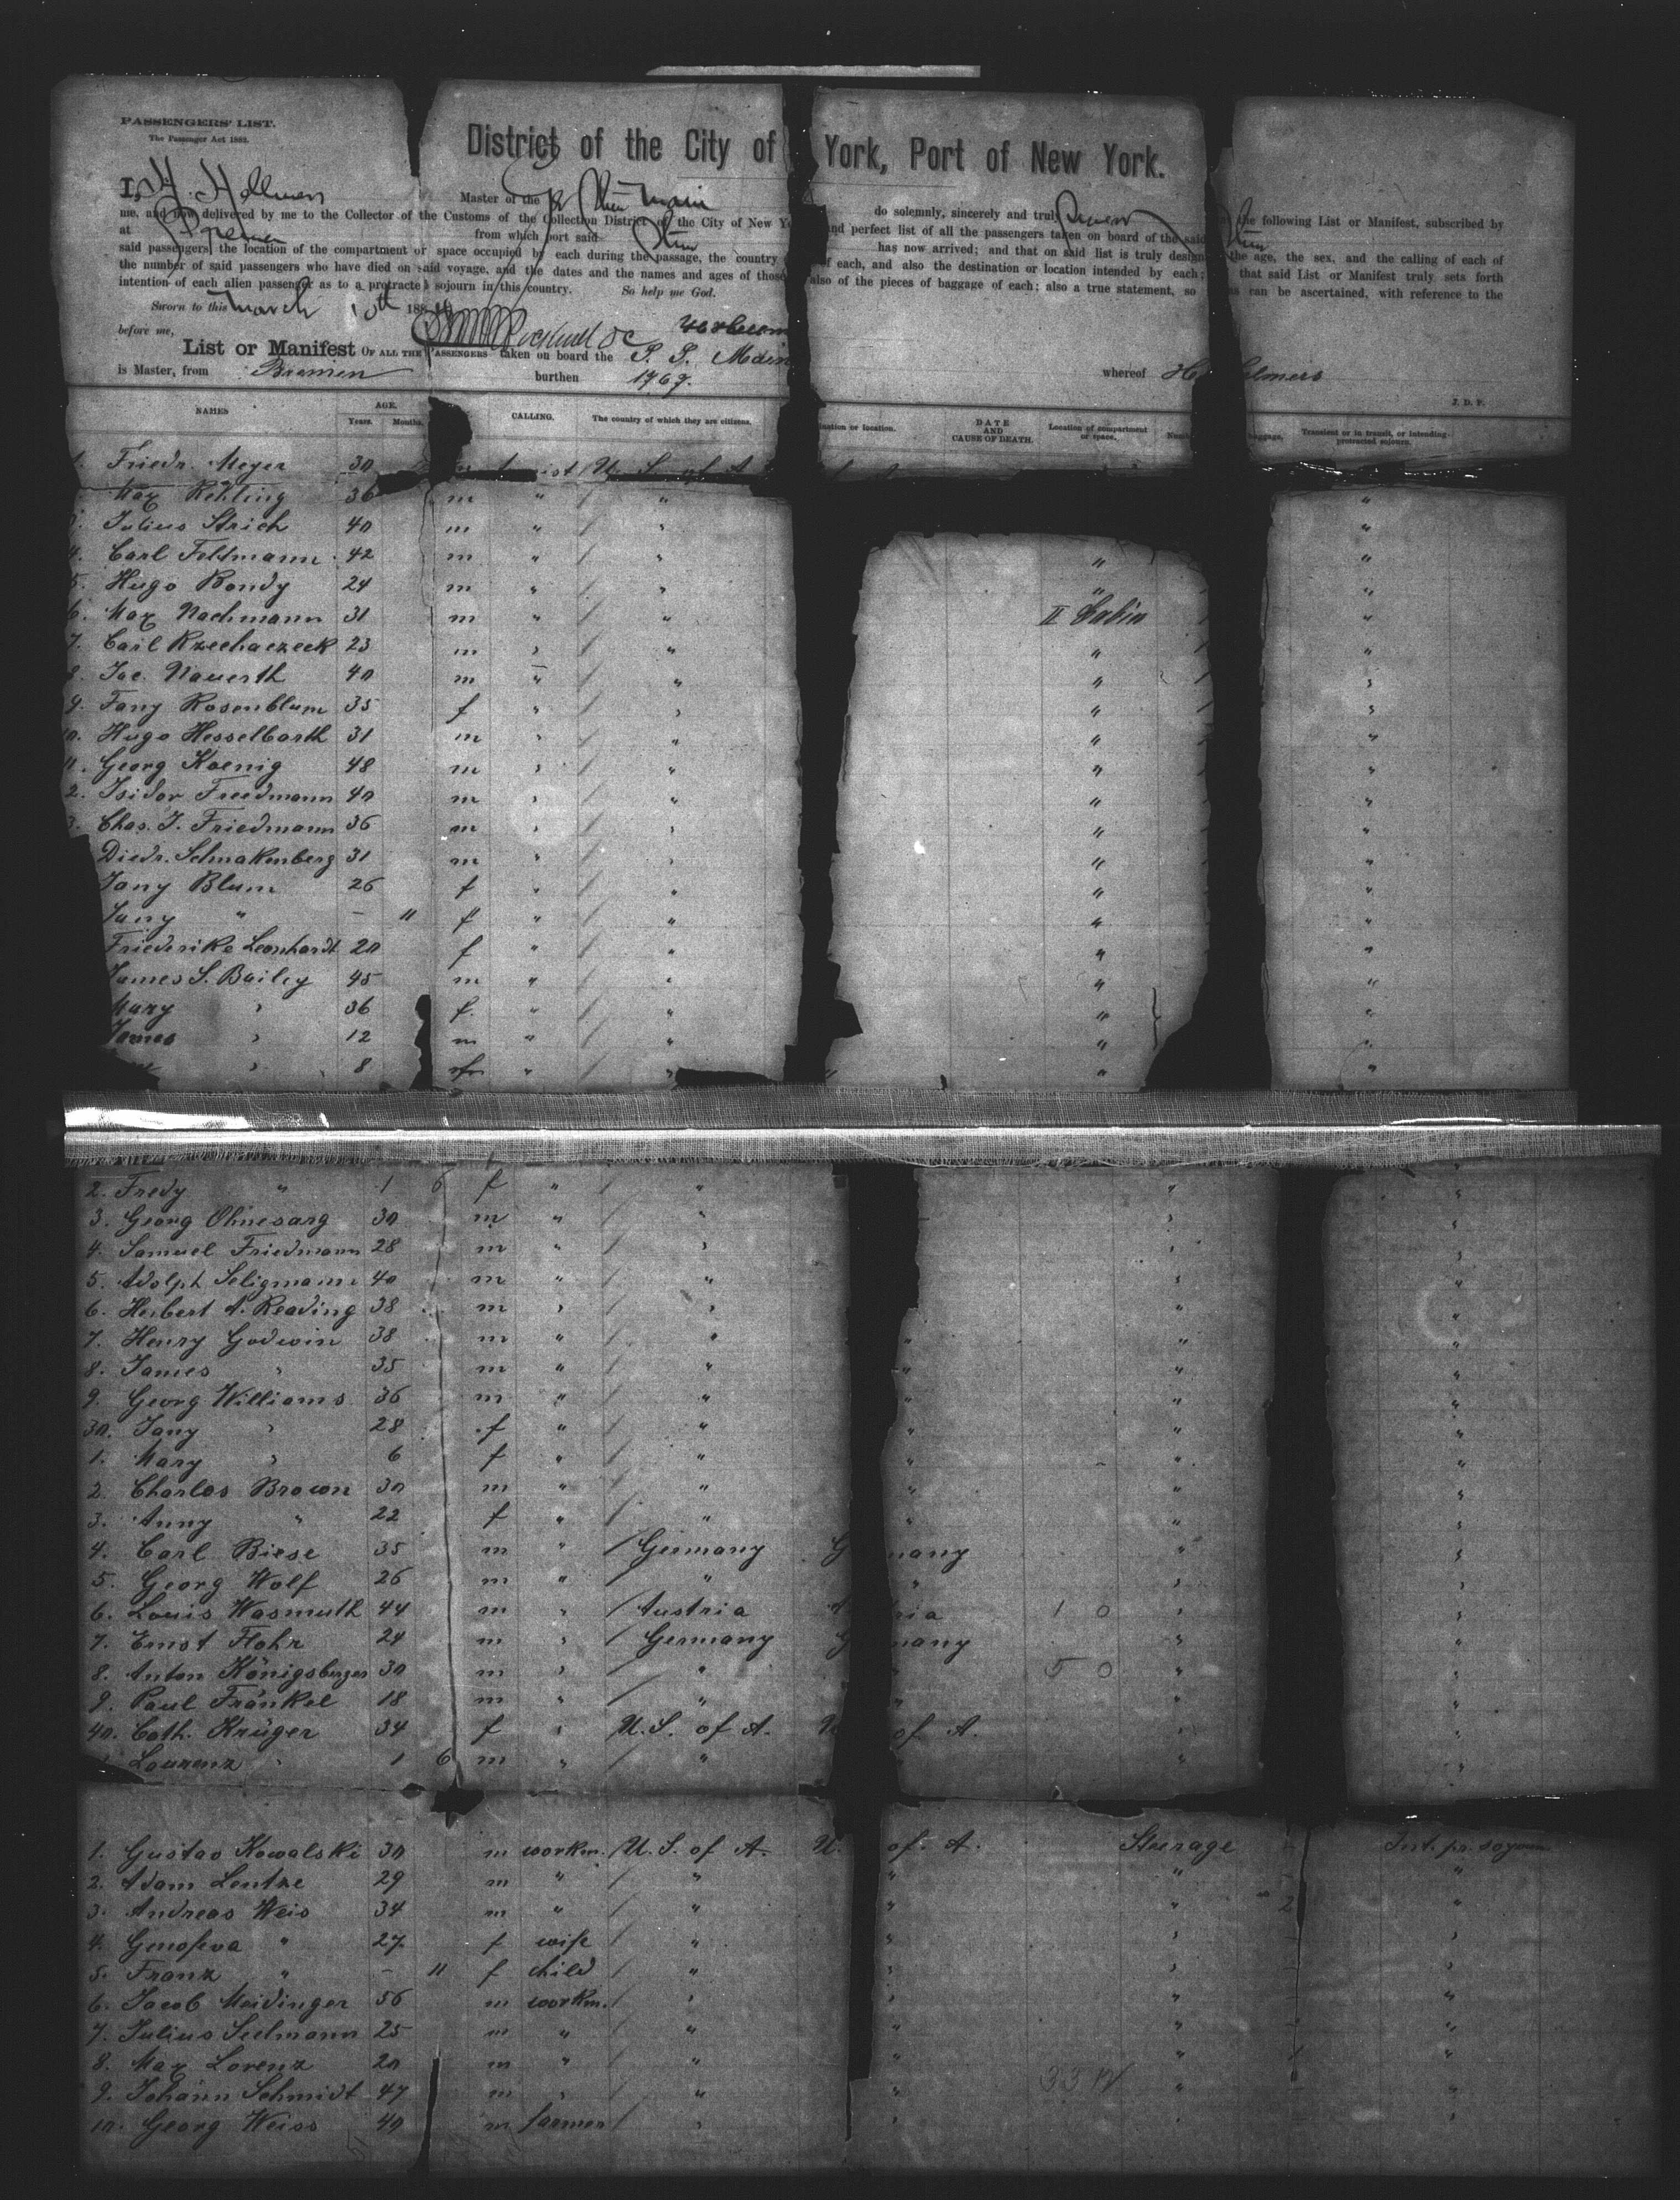 PASSENGERS' LIST.
The Passenger Act 1882.
District of the City of York, Port of New York.
I, H. Helmers Master of the Main do solemnly, sincerely and truly Swear the following List or Manifest, subscribed by
me, and now delivered by me to the Collector of the Customs of the Collection District of the City of New and perfect list of all the passengers taken on board of the said
at Bremen from which port said has now arrived; and that on said list is truly the age, the sex, and the calling of each of
said passengers, the location of the compartment or space occupied by each during the passage, the country of each, and also the destination or location intended by each; that said List or Manifest truly sets forth
the number of said passengers who have died on said voyage, and the dates and the names and ages of those also of the pieces of baggage of each; also a true statement, so as can be ascertained, with reference to the
intention of each alien passenger as to a protracted sojourn in this country. So help me God.
Sworn to this March 10th 188
before me,
List or Manifest OF ALL THE PASSENGERS taken on board the S. S. Main whereof H Helmers
is Master, from Bremen burthen 1769.
J. D. P.
NAMES AGE. Years. Months. CALLING. The country of which they are citizens. location. DATE AND CAUSE OF DEATH. Location of compartment or space. baggage. Transient or in transit, or intending protracted sojourn.
1. Friedr. Meyer 30 U. S. of A
Max Rehling 36 m " / " "
3. Julius Strich 40 m " / " "
4. Carl Feldmann 42 m " / " " "
5. Hugo Bondy 24 m " / " " "
6. Max Nachmann 31 m " / " II Cabin "
7. Carl Rzechaczeck 23 m " / " " "
8. Jac. Nauerth 40 m " / " " "
9. Fany Rosenblum 35 f " / " " "
10. Hugo Hesselbarth 31 m " / " " "
11. Georg Koenig 48 m " / " " "
2. Isidor Freedmann 40 m " / " " "
3. Chas. J. Friedmann 36 m " / " " "
Diedr. Schnakenberg 31 m " / " " "
Fany Blum 26 f " / " " "
" – 11 f " / " " "
Friederike Leonhardt 20 f " / " " "
James S. Bailey 45 m " / " " "
Mary " 36 f. " / " " "
James " 12 m " / " " "
" 8 " / " " "
2. Fredy " 1 6 f " / " " "
3. Georg Ohnesarg 30 m " / " " "
4. Samuel Friedmann 28 m " / " " "
5. Adolph Seligmann 40 m " / " " "
6. Herbert A. Reading 38 m " / " " "
7. Henry Godwin 38 m " / " " " "
8. James " 35 m " / " " " "
9. Georg Williams 36 m " / " " " "
30. Fany " 28 f " / " " " "
1. Mary " 6 f " / " " "
2. Charles Brown 30 m " / " " " "
3. Anny " 22 f " / " " " "
4. Carl Biese 35 m " / Germany G many " "
5. Georg Wolf 26 m " / " " " "
6. Louis Wasmuth 44 m " / Austria A ria 1 0 " "
7. Ernst Flohr 24 m " / Germany G many " "
8. Anton Königsberger 30 m " / " " 5 0 " "
9. Paul Fränkel 18 m " / " " " "
40. Cath. Krüger 34 f " U.S. of A. U of A. " "
Laurenz " 1 6 m " / " " "
1. Gustav Kowalski 30 m workm. / U. S. of A. U. of A. Steerage Int. pr. sojourn
2. Adam Lentze 29 m " / " " " "
3. Andreas Weis 34 m " / " " " 2 "
4. Genofeva " 27 f wife / " " " "
5. Franz " – 11 f child / " " " "
6. Jacob Meidinger 56 m workm. / " " " "
7. Julius Seelmann 25 m " / " " " "
8. Max Lorenz 20 m " / " " " 1 "
9. Johann Schmidt 47 m " / " " " "
10. Georg Weiss 40 m farmer / " " " "